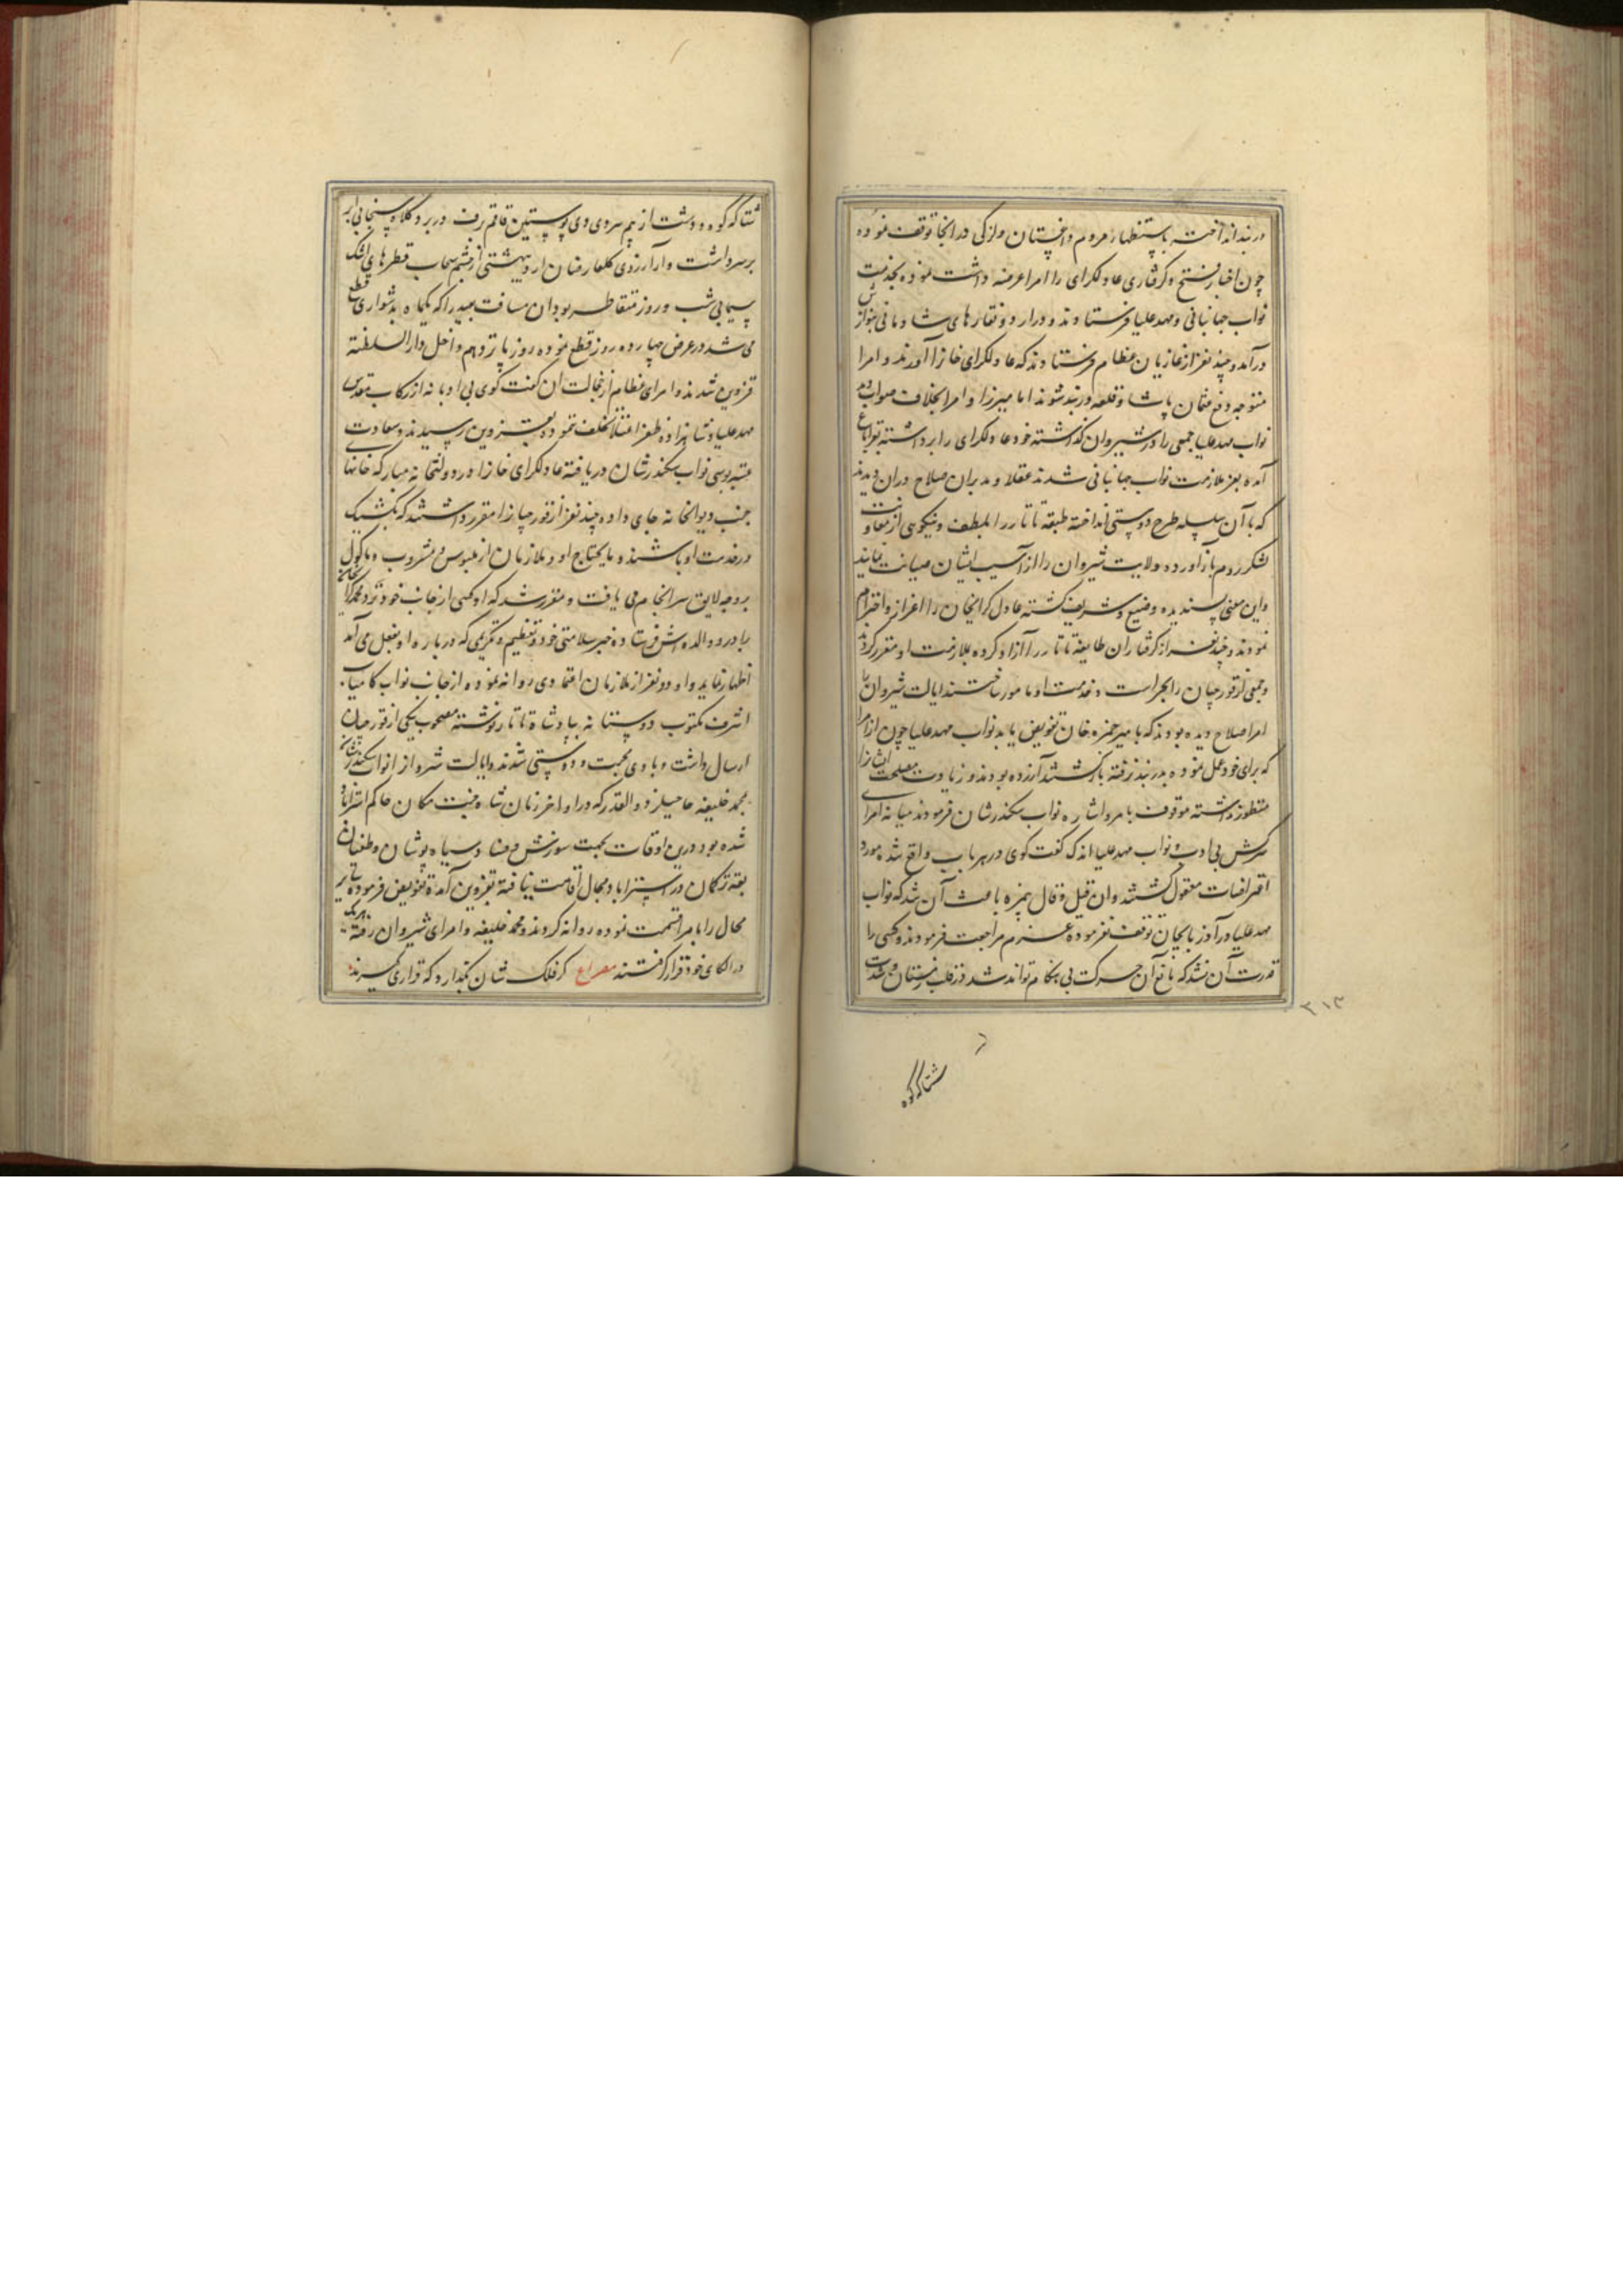 دربند انداخت باستظهار مردم داغستان و لزکی در انجا توقف نموده
چون اخبار فتح و کرفتاری عادلکرای را امرا عرضه داشت نموده بخدمت
نواب جهانبانی و مهدعلیا فرستادند و در اردو نقارهای شادمانی بنوازش
درآمد و چند نفر از غازیان عظام فرستادند که عادلکرای خانرا آورند و امرا
متوجه دفع عثمان پاشا و قلعه دربند شوند اما میرزا و امرا بخلاف صوابدید
نواب مهدعلیا جمعی را در شیروان کذاشته خود عادلکرای را برداشته بقراباغ
آمده بعز ملازمت نواب جهانبانی شدند عقلا و مدبران صلاح دران دیدند
که با آن سلسله طرح دوستی انداخته طبقه تاتار را بلطف و نیکویی از معاونت
لشکر روم بازاورده ولایت شیروان را از آسیب ایشان صیانت نمایند
واین معنی پسندیده وضیع و شریف کشته عادل کرایخان را اعزاز و احترام
نمودند و چند نفر از کرفتاران طایفه تاتار را آزاد کرده بملازمت او مقرر کردند
و جمعی از قورچیان را بحراست و خدمت او مامور ساختند ایالت شیروان را
امرا صلاح دیده بودند که بامیر حمزه خان تفویض یابد نواب مهدعلیا چون از امرا
که برای خود عمل نموده بدربند نرفته بازکشتند آزرده بودند و زیادت مصلحت ایشانرا
منظور نداشته موقوف بامر و اشاره نواب سکندرشان فرمودند میانه امرای
سرکش بی ادب و نواب مهدعلیا اندک کفت کوی درهر باب واقع شده مورد
اقتراضات معقول کشتند وان قیل و قال نیزه باعث آن شد که نواب
مهدعلیا در آذربایجان توقف نفرموده عزم مراجعت فرمودند و کسی را
قدرت آن نشد که مانع آن حرکت بی هنکام تواند شد در قلب زمستان و شدت
۳۱۳
شتا که کوه
شتا که کوه و دشت از بیم سردی دی پوستین قاقم برف در بر و کلاه سنجابی ابر
برسر داشت و از آرزوی کلعارضان اردیبهشتی از چشم سحاب قطرهای اشک
سیمابی شب و روز متقاطر بود ان مسافت بعید را که بکماه بدشواری قطع
می شد در عرض چهارده روز قطع نموده روز پانزدهم داخل دارالسلطنه
قزوین شدند و امرای عظام از خجالت ان کفت کوی بی ادبانه از رکاب مقدس
مهدعلیا و شاهزاده ظفر اعتلا تخلف نموده بقزوین رسیدند و سعادت
عتبه بوسی نواب سکندرشان دریافته عادلکرای خانرا در دولتخانه مبارکه خانهای
جنب دیوانخانه جای داده چند نفر از قورچیانرا مقرر داشتند که بکشیک
در خدمت او باشند و مایحتاج او و ملازمان از ملبوس و مشروب و ماکول
بروجه لایق سرانجام می یافت و مقرر شد که او کسی از جانب خود نزد محمدکرای خان
برادر و والده اش فرستاده خبر سلامتی خود و تعظیم و تکریمی که درباره او بفعل می آمد
اظهار نماید و او دو نفر از ملازمان اعتمادی روانه نموده از جانب نواب کامیاب
اشرف مکتوب دوستانه بپادشاه تاتار نوشته مصحوب یکی از قورچیان
ارسال داشت و باوی محبت و دوستی شدند و ایالت شیروا از انواب سکندرشان
بمحمد خلیفه حاجیلر ذوالقدر که در اواخر زمان شاه جنت مکان حاکم استراباد
شده بود درین اوقات بجهت سورش و فساد سیاه پوشان و طغیان
یقه ترکمان در استراباد مجال اقامت نیافته بقزوین آمده تفویض فرموده سایر
محال را بامرا قسمت نموده روانه کردند و محمد خلیفه و امرای شیروان رفته هریک
در الکای خود قرار کرفتند مصراع کر فلک شان بکذارد که قراری کیرند